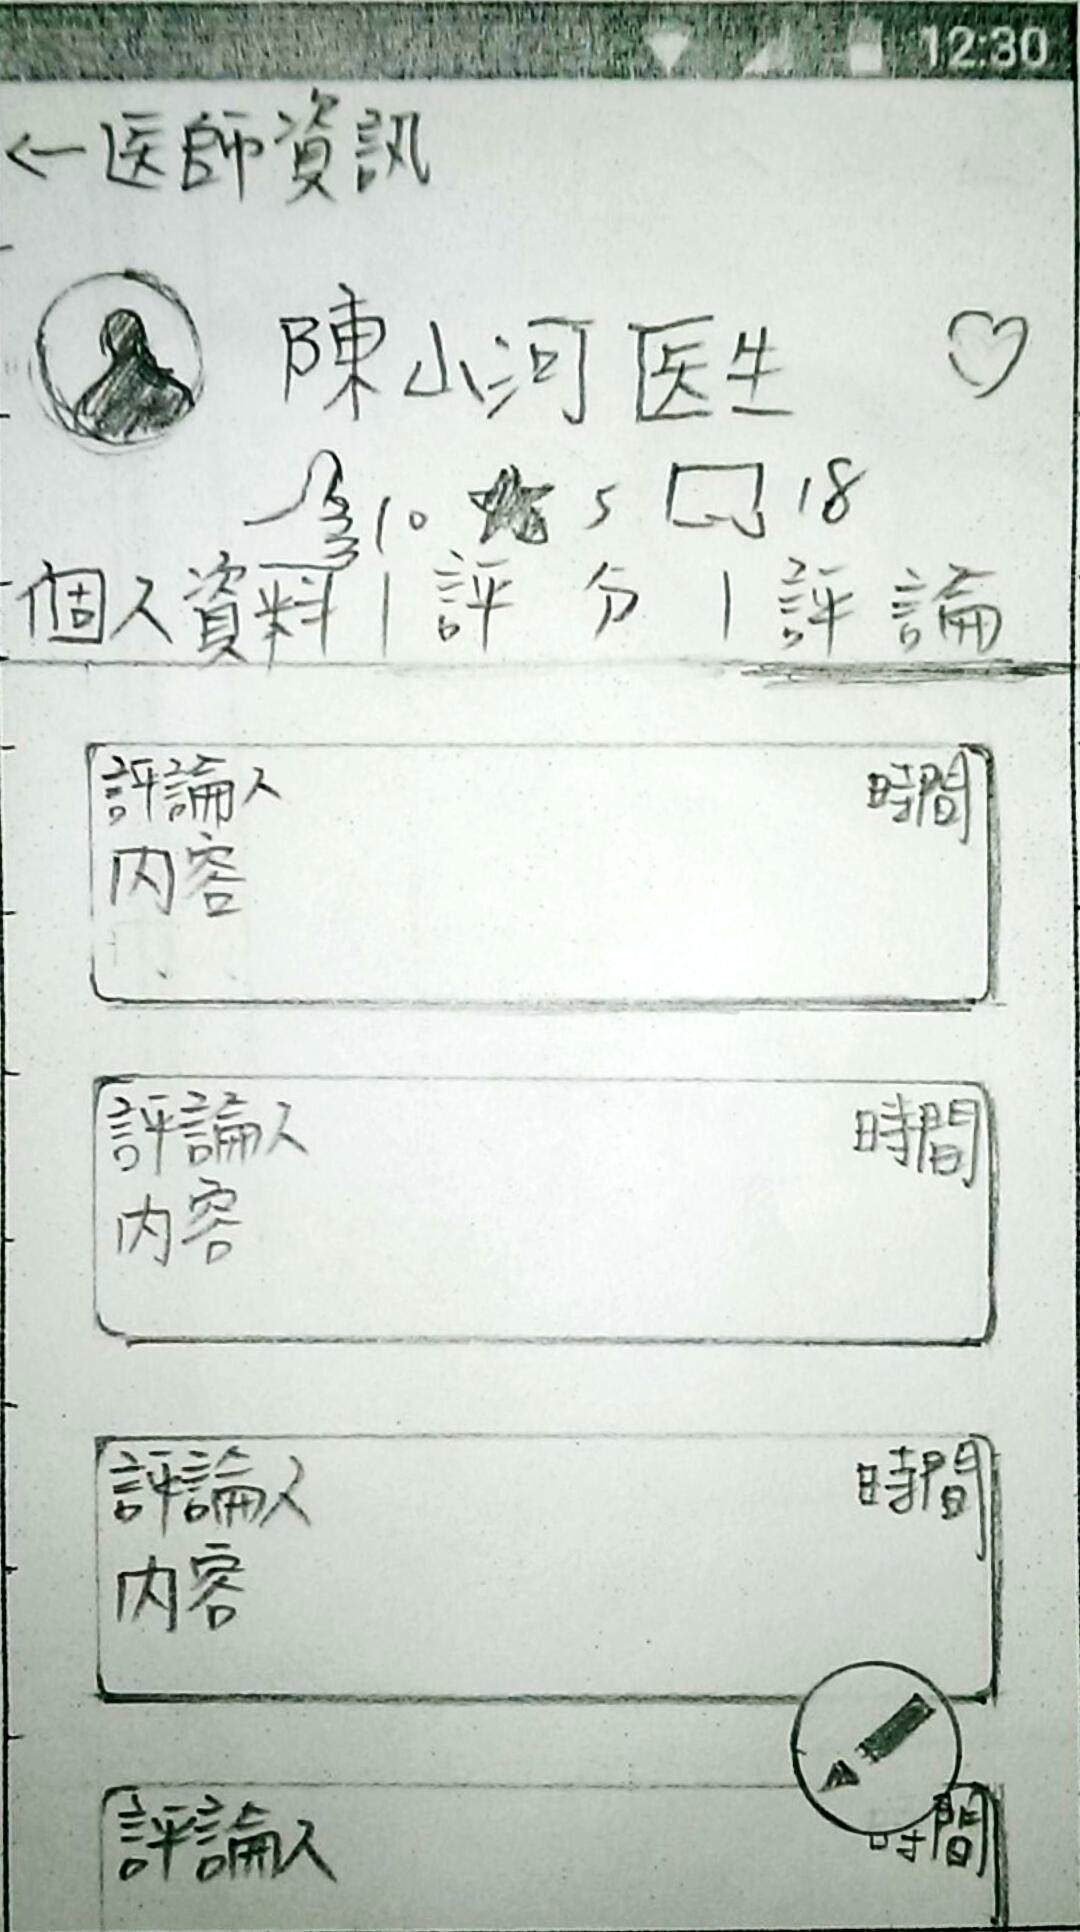 12:30
←医師資訊
陳山河医生
10 5 18
個人資料|評分|評論
評論人 時間
内容
評論人 時間
内容
評論人 時間
内容
評論人 時間